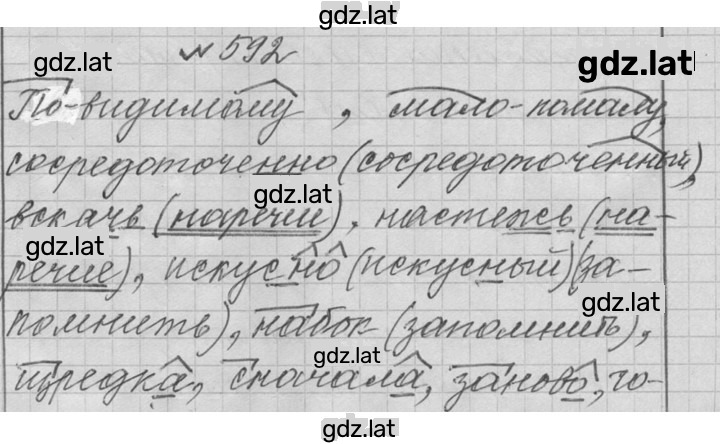 gdz.lat
№ 592
gdz.lat
gdz.lat
По-видимому, мало-помалу,
сосредоточенно (сосредоточенный),
gdz.lat
вскачь (наречие), настежь (на-
gdz.lat
речие), искусно (искусный) (за-
gdz.lat
помнить), набок (запомнить),
gdz.lat
изредка, сначала, заново, го-
gdz.lat